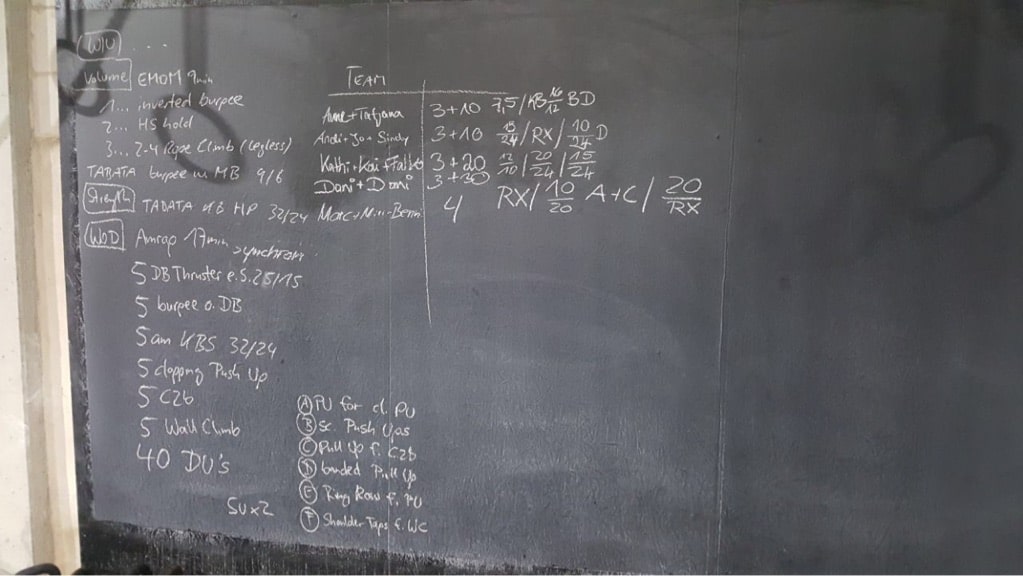 W/U ...
Volume EMOM 9min
1... inverted burpee
2... HS hold
3... 2-4 Rope Climb (legless)
TABATA burpee m MB 9/6
Strength TABATA KB HP 32/24
WOD Amrap 17min
synchron
5 DB Thruster e.S. 25/15
5 burpee o. DB
5 am KBS 32/24
5 clapping Push Up
5 C2b
5 Wall Climb
40 DU's
SU x 2
TEAM
Anne + Tatjana 3+10 7,5 / KB 16/12 BD
Andi + Jo + Sindy 3+10 18/24 / RX / 10/24 D
Kathi + Kai + 3+20 12/10 / 20/24 / 15/24
Dani + Domi 3+30
Marc + + 4 RX / 10/20 A+C / 20/RX
A PU for cl. PU
B Sc. Push Ups
C Pull Up f. C2b
D banded Pull Up
E Ring Row f. PU
F Shoulder Taps f. WC